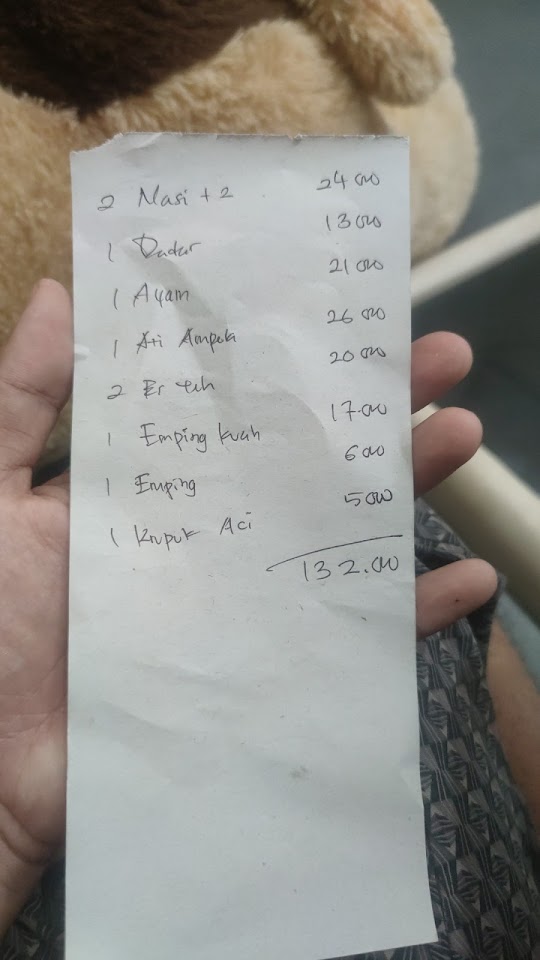 2 Nasi + 2 24000
1 Dadar 13000
1 Ayam 21000
1 Ati Ampela 26000
2 Es teh 20000
1 Emping kuah 17.000
1 Emping 6000
1 Krupuk Aci 5000
132.000